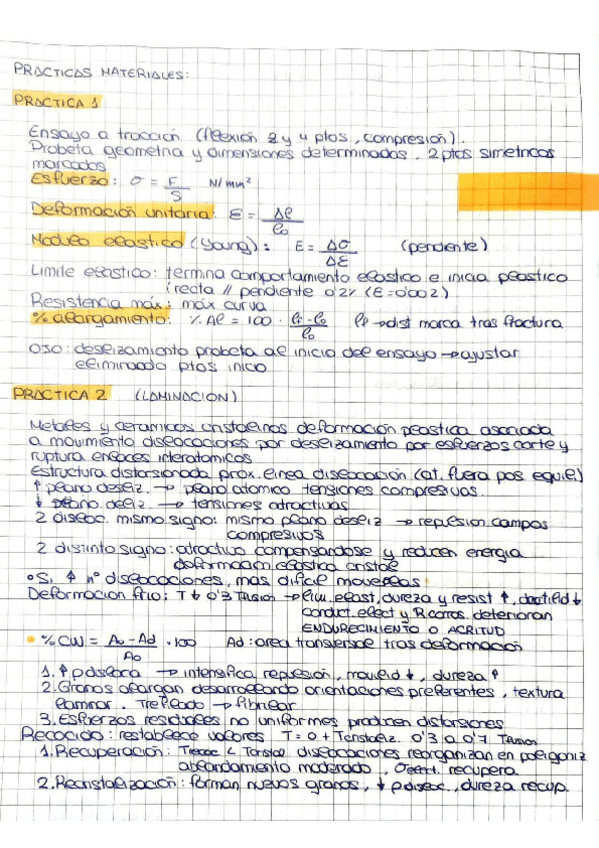 PRACTICAS MATERIALES:
PRACTICA 1
Ensayo a tracción (flexión 2 y 4 ptos, compresión).
Probeta geometria y dimensiones determinadas. 2 ptos simetricos
marcados
Esfuerzo: σ = F/S N/mm²
Deformación unitaria: ε = Δl/l₀
Modulo elastico (Young): E = Δσ/Δε (pendiente)
Limite elastico: termina comportamiento elastico e inicia plastico
(recta // pendiente 0'2% (ε=0'002)
Resistencia máx: máx curva
% alargamiento: % Al = 100 · (lf - l₀)/l₀ lf → dist marca tras fractura
OJO: deslizamiento probeta al inicio del ensayo → ajustar
eliminado ptos inicio
PRACTICA 2 (LAMINACION)
Metales y ceramicos cristalinos deformación plastica asociada
a movimiento dislocaciones por deslizamiento por esfuerzos corte y
ruptura enlaces interatomicos
Estructura distorsionada prox. linea dislocación (at. fuera pos equil)
↑ plano desliz. → plano atomico tensiones compresivas.
↓ plano. desliz → tensiones atractivas
2 disloc. mismo signo: mismo plano desliz → repulsion campos
compresivos
2 distinto signo: atractivo compensandose y reducen energia
deformacion elastica cristal
Si ↑ nº dislocaciones, mas dificil moverlas
Deformacion frio: T ↓ 0'3 Tfusion → lim. elast, dureza y resist ↑, ductilid ↓
conduct. elect y R corros. deterioran
ENDURECIMIENTO O ACRITUD
% CW = (A₀ - Ad)/A₀ · 100 Ad: area transversal tras deformación
1. ↑ ρ disloca → intensifica repulsion, movilid ↓, dureza ↑
2. Granos alargan desarrollando orientaciones preferentes, textura
laminar. Trefilado → fibrilar
3. Esfuerzos residuales no uniformes producen distorsiones
Recocido: restablece valores T = 0 + Tcristaliz. 0'3 a 0'7 Tfusion
1. Recuperación: < dislocaciones reorganizan en poligoniz
ablandamiento moderado, recupera.
2. Recristalización: forman nuevos granos, ↓ ρ disloc., dureza recup.